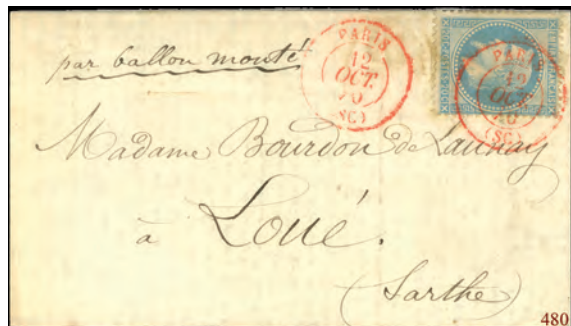 par ballon monté
PARIS
12
OCT.
70
(SC)
PARIS
12
OCT.
70
(SC)
Madame Bourdon de Launay
à Loué.
(Sarthe)
480